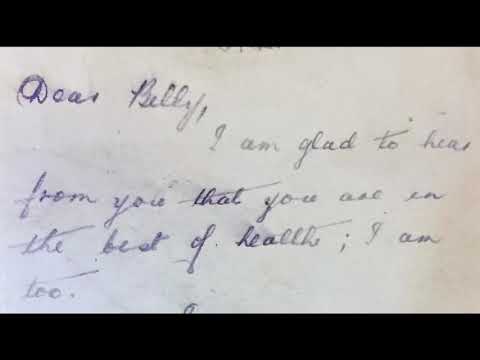 Dear Billy,
I am glad to hear
from you that you are in
the best of health; I am
too.